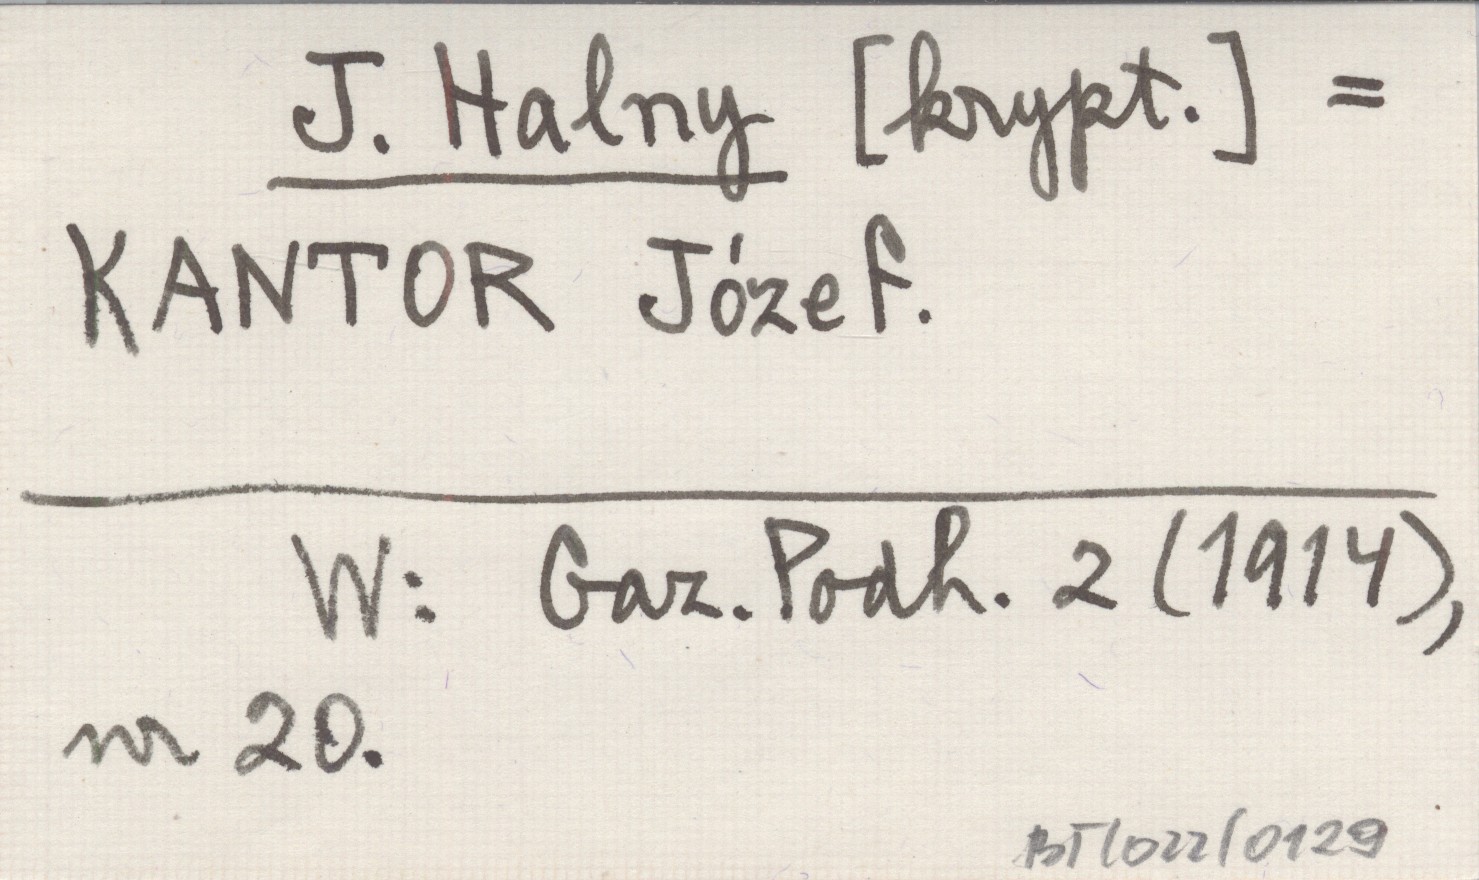 J. Halny [krypt.] =
KANTOR Józef.
W: Gaz. Podh. 2 (1914),
nr 20.
BT/022/0129